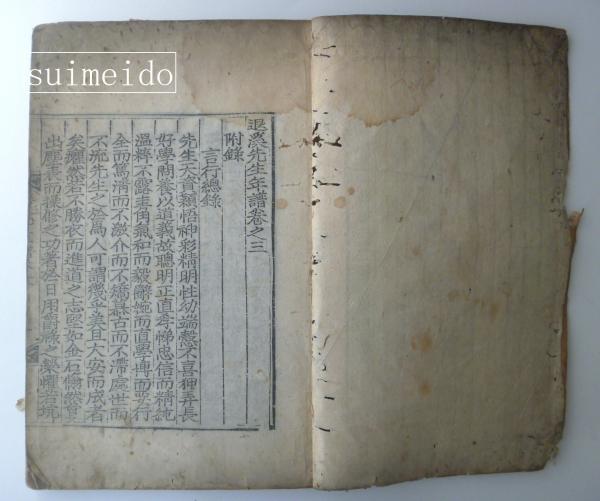 suimeido
退溪先生年譜卷之三
附錄
言行總錄
先生天資穎悟神彩精明性幼端愨不喜狎弄長
好學問養以道義故聰明正直孝悌忠信而精純
溫粹不露圭角氣和而毅辭婉而直學博而要行
全而篤淸而不激介而不矯慕古而不滯處世而
不流先生之於爲人可謂幾乎美且大安而成者
矣癯然若不勝衣而進道之志堅如金石翛然夐
出塵表而操修之功著於日用爵祿之榮懼若坑